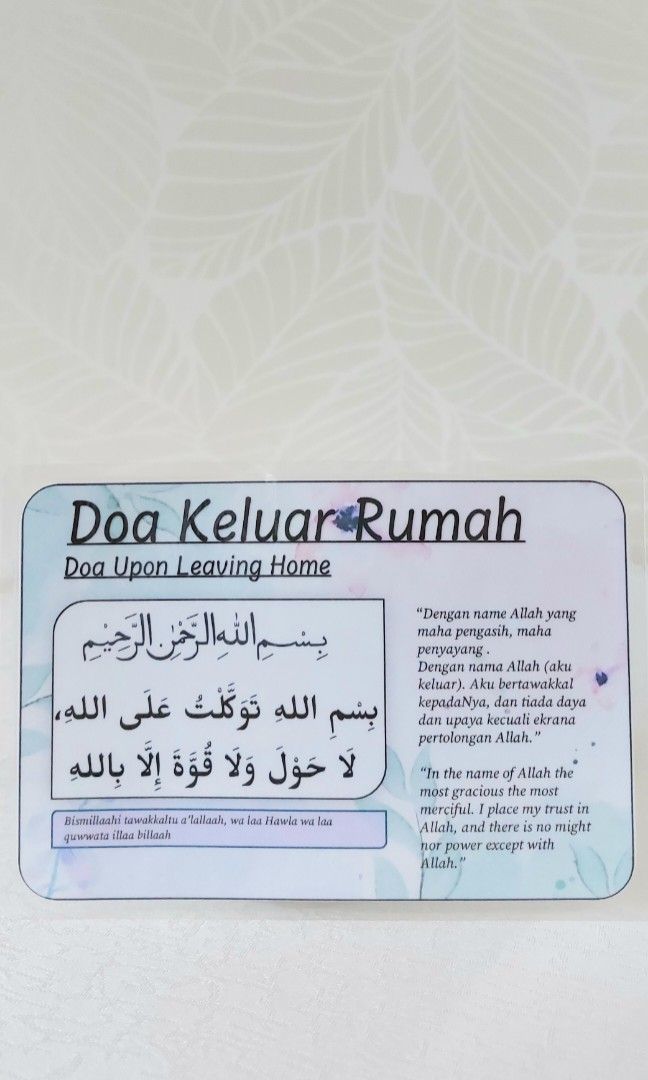 Doa Keluar Rumah
Doa Upon Leaving Home
بِسْمِ اللهِ الرَّحْمٰنِ الرَّحِيْمِ
بِسْمِ اللهِ تَوَكَّلْتُ عَلَى اللهِ،
لَا حَوْلَ وَلَا قُوَّةَ إِلَّا بِاللهِ
Bismillaahi tawakkaltu a'lallaah, wa laa Hawla wa laa
quwwata illaa billaah
“Dengan name Allah yang
maha pengasih, maha
penyayang .
Dengan nama Allah (aku
keluar). Aku bertawakkal
kepadaNya, dan tiada daya
dan upaya kecuali ekrana
pertolongan Allah.”
“In the name of Allah the
most gracious the most
merciful. I place my trust in
Allah, and there is no might
nor power except with
Allah.”